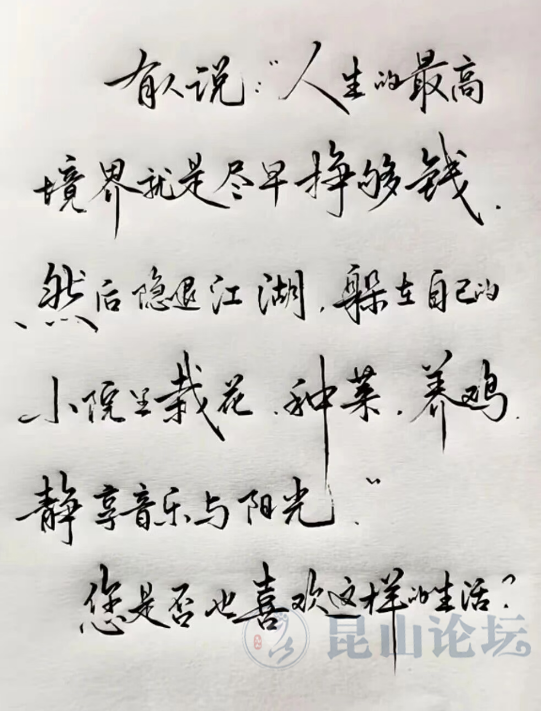 有人说："人生的最高
境界就是尽早挣够钱.
然后隐退江湖,躲在自己的
小院里栽花.种菜.养鸡.
静享音乐与阳光."
您是否也喜欢这样的生活?
昆山论坛